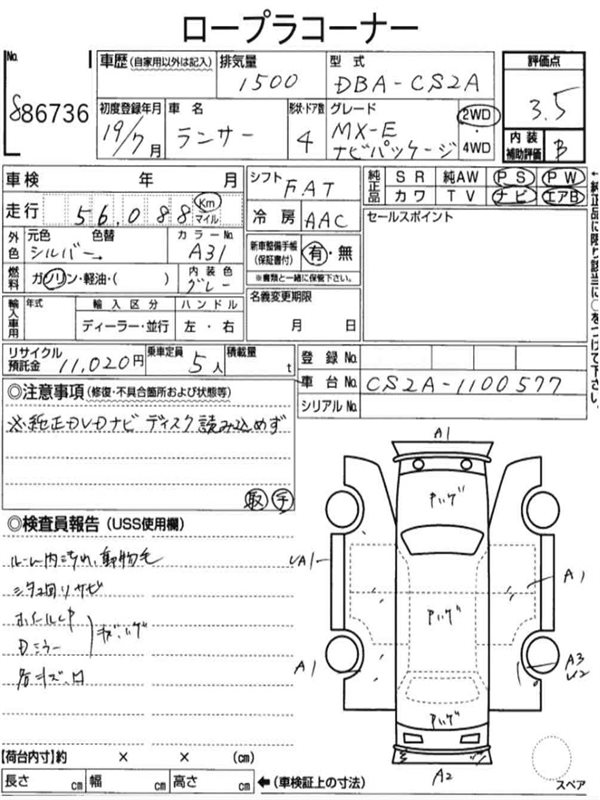 ロープラコーナー
No.
886736
車歴 (自家用以外は記入)
排気量
1500
型 式
DBA-CS2A
評価点
3.5
初度登録年月
19/7月
車 名
ランサー
形状・ドア数
4
グレード
MX-E
ナビパッケージ
2WD
・
4WD
内 装
補助評価
B
車検 年 月
走行 56,088 Km マイル
シフト FAT
冷 房 AAC
純正品
SR 純AW PS PW
カワ TV ナビ エアB
セールスポイント
外色
元色 色替
シルバー
カラーNo.
A31
新車整備手帳
(保証書付)
有・無
※書類と一緒に保管下さい。
燃料
ガソリン・軽油・( )
内 装 色
グレー
輸入車用
年式
輸 入 区 分
ハ ン ド ル
ディーラー・並行
左 ・ 右
名義変更期限
月 日
←純正品に限り該当に○をつけて下さい。
リサイクル
預託金
11,020円
乗車定員 5人
積載量 t
登 録 No.
車 台 No. CS2A-1100577
シリアルNo.
◎注意事項 (修復・不具合箇所および状態等)
※純正DVDナビ ディスク読み込めず
取 手
◎検査員報告 (USS使用欄)
ルーム内汚れ、動物毛
シタ回りサビ
Dミラー
A1
A1
A1
A1
A3
A2
【荷台内寸】約 × × (cm)
長さ cm 幅 cm 高さ cm ←(車検証上の寸法)
スペア